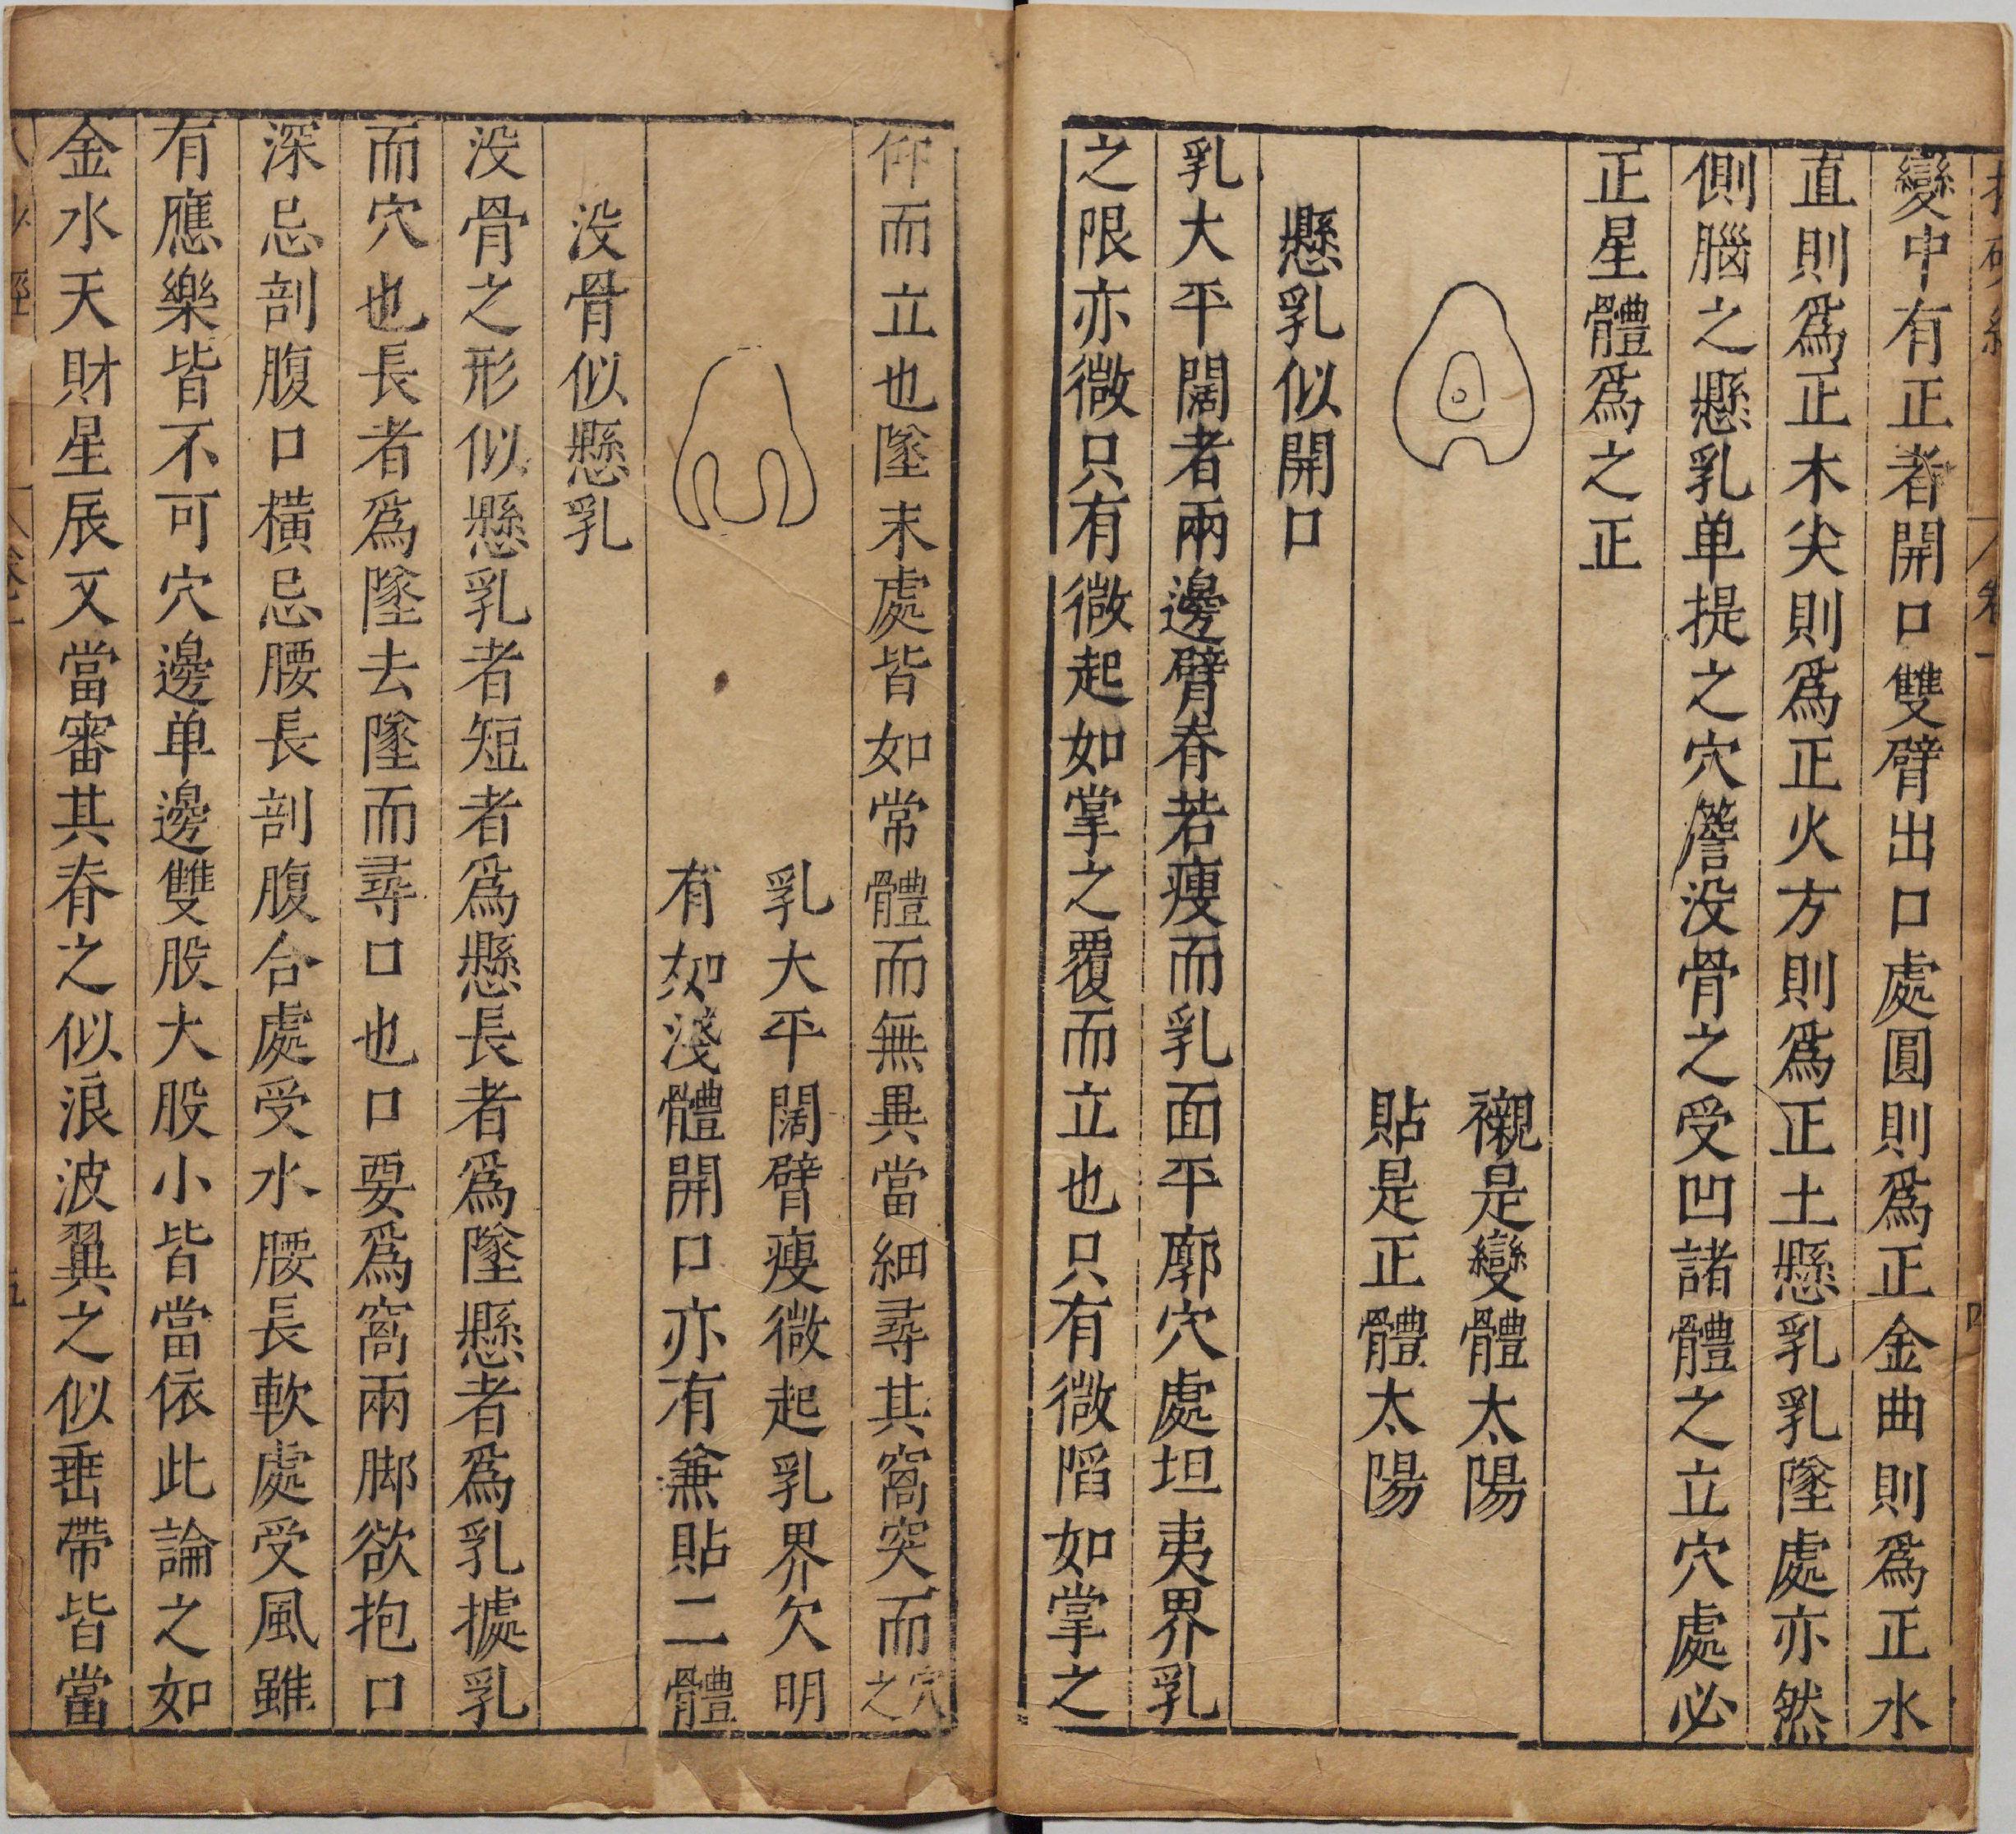 卷一
四
變中有正者開口雙臂出口處圓則爲正金曲則爲正水
直則爲正木尖則爲正火方則爲正土懸乳乳墜處亦然
側腦之懸乳单提之穴簷没骨之受凹諸體之立穴處必
正星體爲之正
襯是變體太陽
貼是正體太陽
懸乳似開口
乳大平闊者兩邊臂脊若瘦而乳面平廓穴處坦夷界乳
之限亦微只有微起如掌之覆而立也只有微陷如掌之
仰而立也墜末處皆如常體而無異當細尋其窩突而穴之
乳大平闊臂瘦微起乳界欠明
有如淺體開口亦有兼貼二體
没骨似懸乳
没骨之形似懸乳者短者爲懸長者爲墜懸者爲乳據乳
而穴也長者爲墜去墜而尋口也口要爲窩兩脚欲抱口
深忌剖腹口橫忌腰長剖腹合處受水腰長軟處受風雖
有應樂皆不可穴邊单邊雙股大股小皆當依此論之如
金水天財星辰又當審其脊之似浪波翼之似垂帶皆當
五